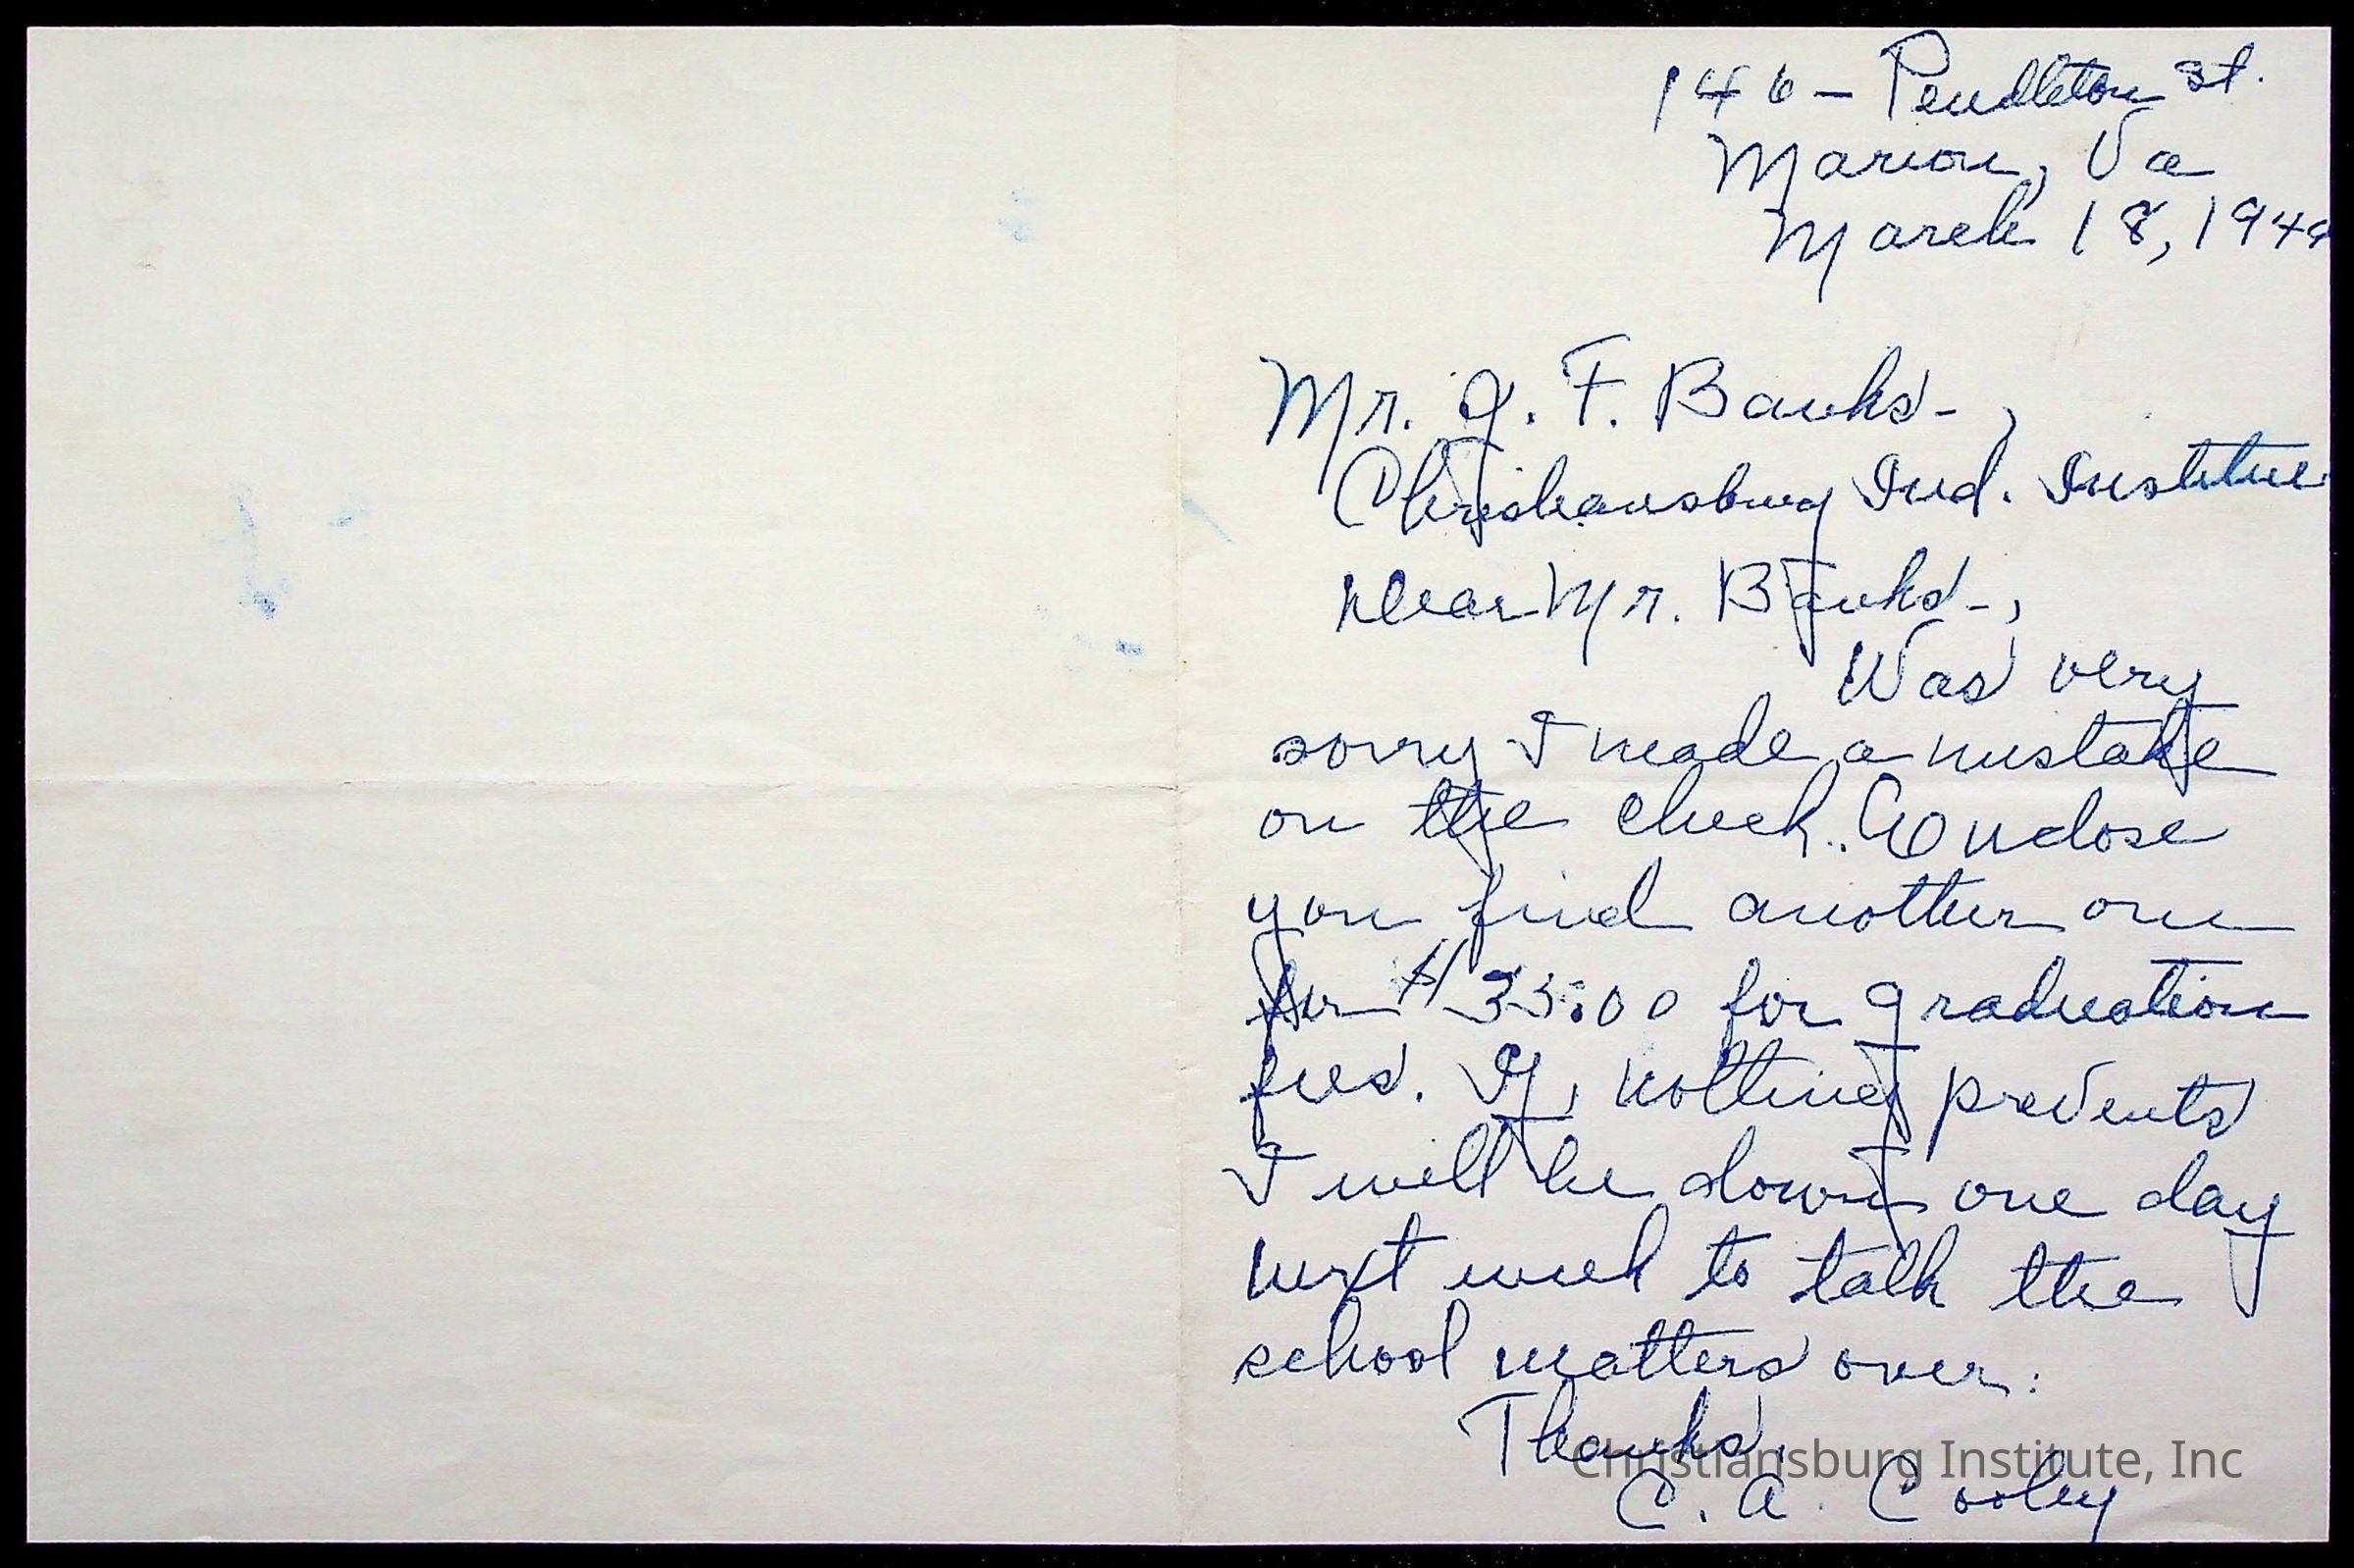 146 - Pendleton St.
Marion, Va
March 18, 194
Mr. J. F. Banks-,
Christiansburg Ind. Institue
Dear Mr. Banks-,
Was very
sorry I made a mistake
on the check.. Enclose
you find another one
for $ 35:00 for graduation
fees. If, nothing prevents
I will be down one day
next week to talk the
school matters over.
Thanks,
Christiansburg Institute, Inc
C. A. Cooley